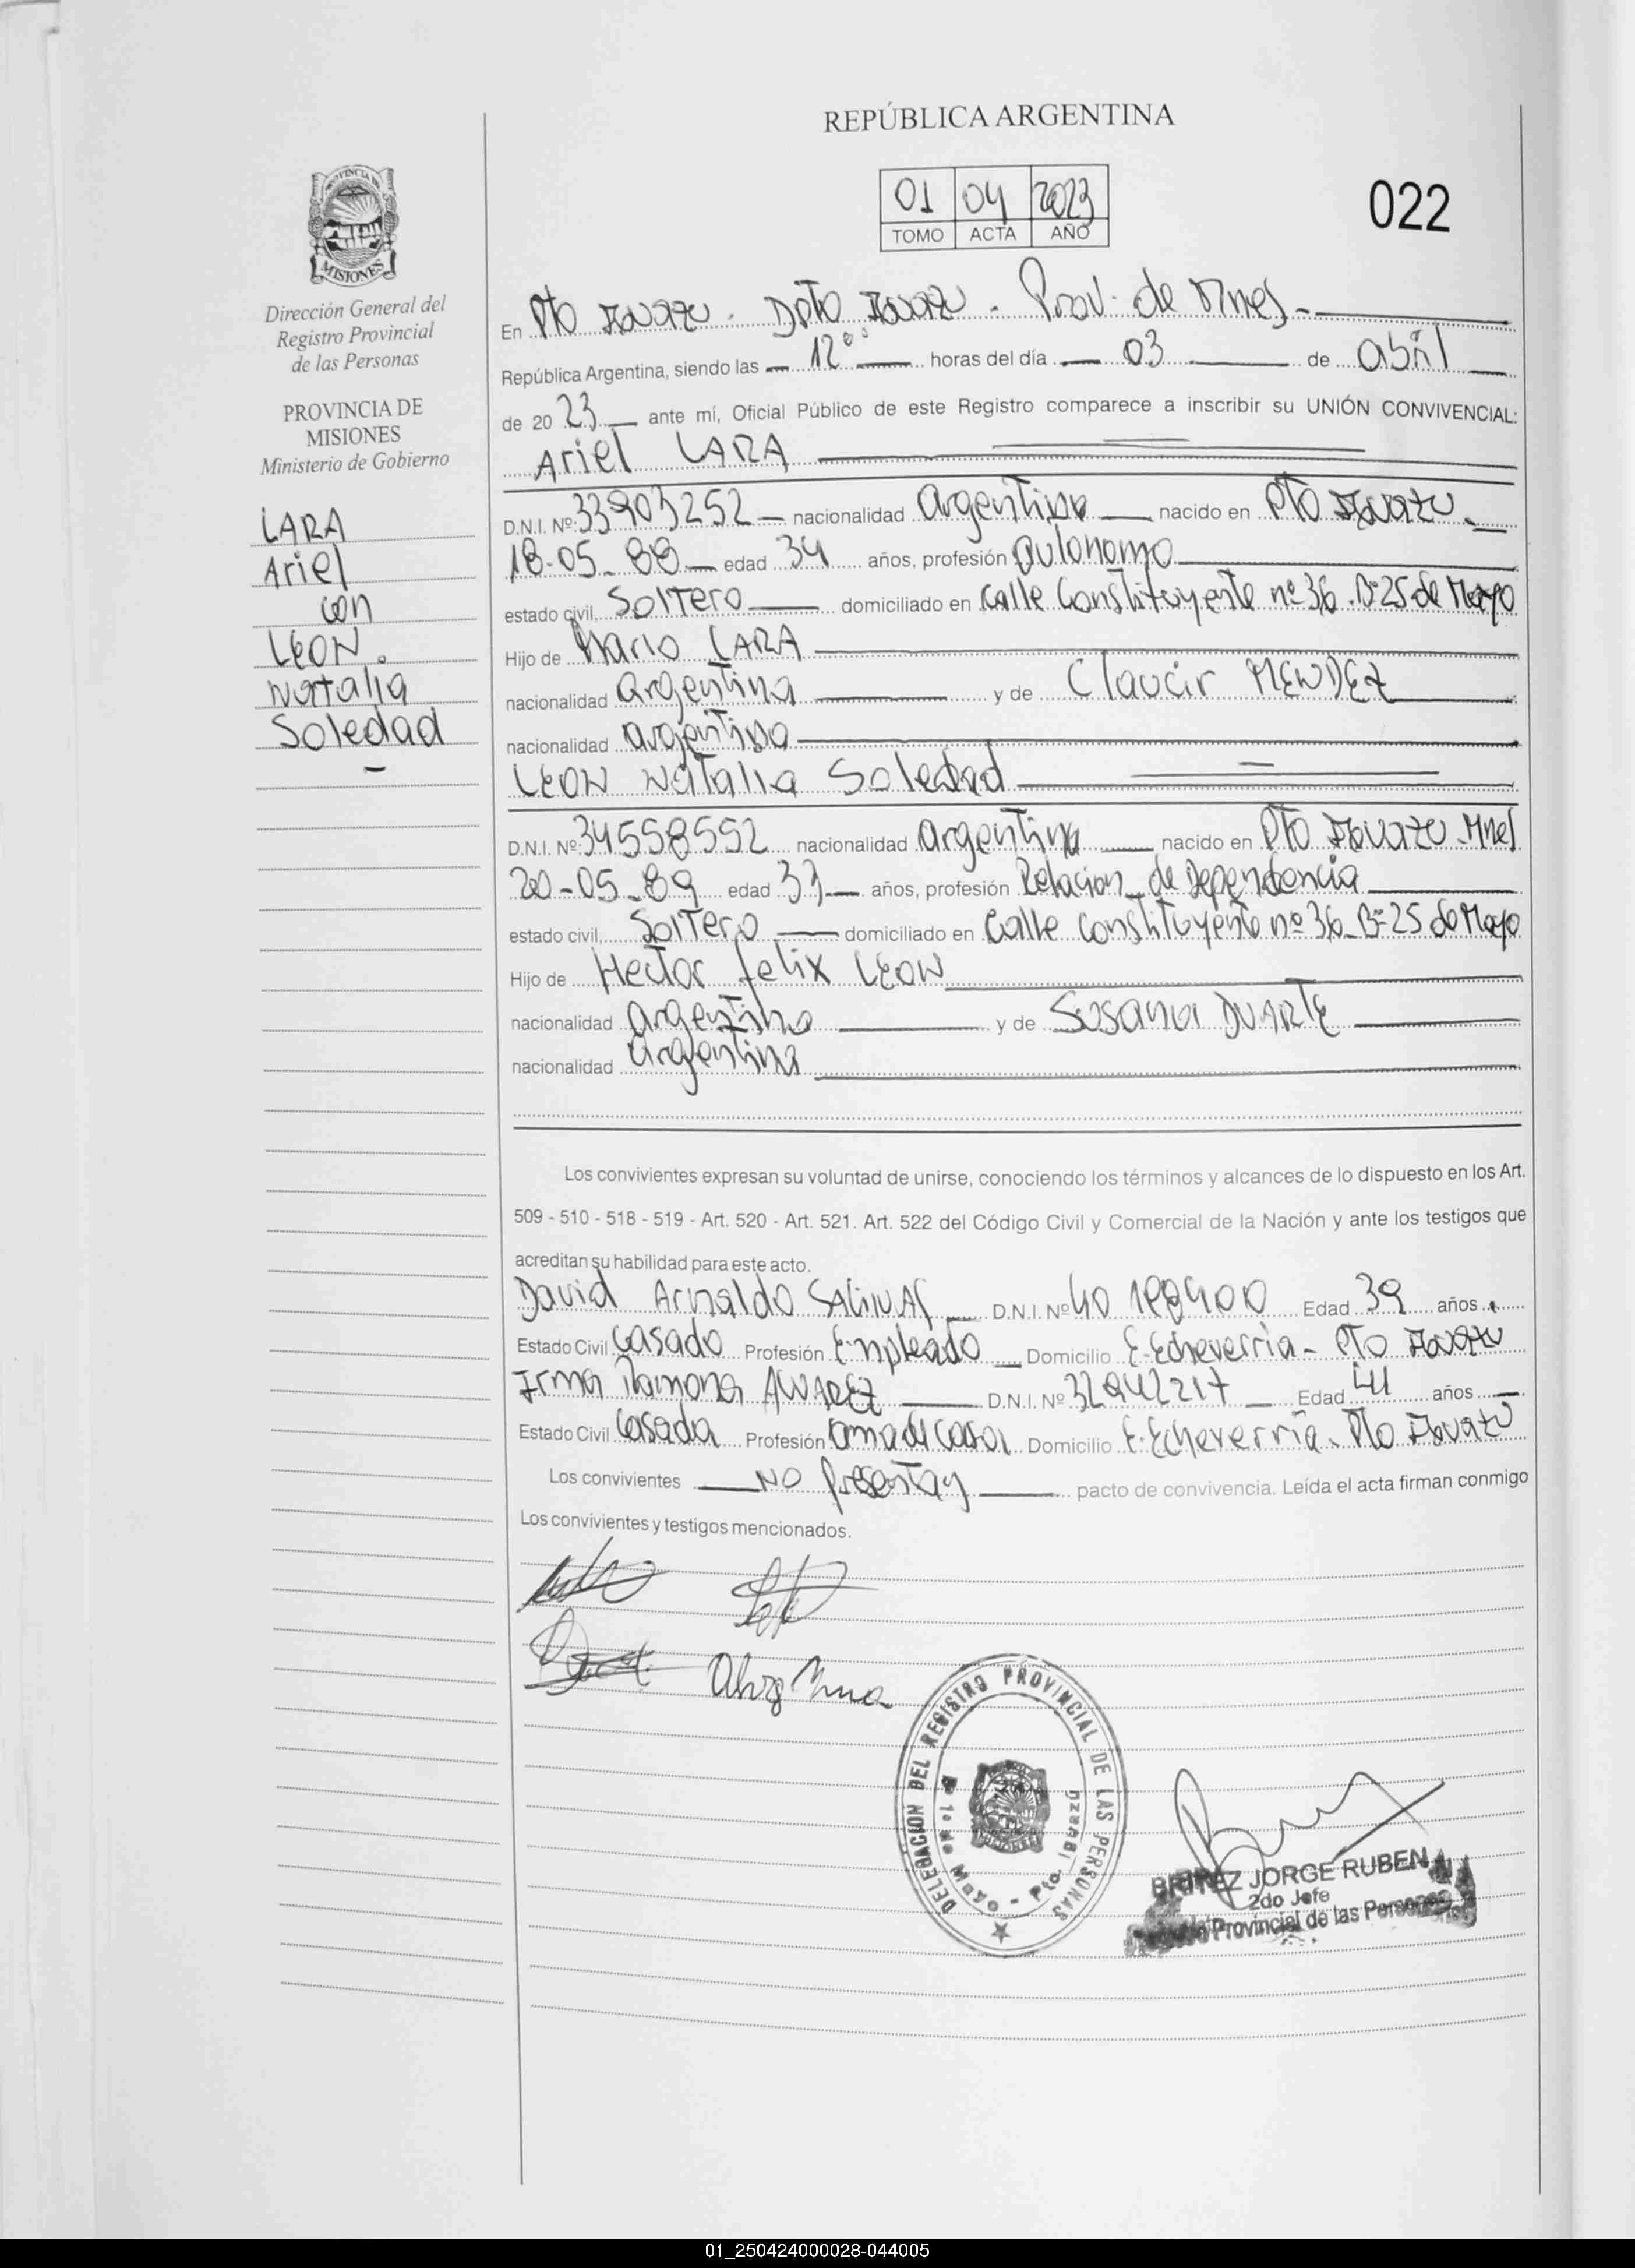 REPÚBLICA ARGENTINA
01 04 2023
TOMO ACTA AÑO
022
PROVINCIA DE
MISIONES
Dirección General del
Registro Provincial
de las Personas
PROVINCIA DE
MISIONES
Ministerio de Gobierno
LARA
Ariel
con
LEON.
Natalia
Soledad
En Pto Iguazu - Dpto Iguazu - Prov. de Mnes -
República Argentina, siendo las 12°° horas del día 03 de abril
de 20 23 ante mí, Oficial Público de este Registro comparece a inscribir su UNIÓN CONVIVENCIAL:
Ariel LARA
D.N.I. Nº: 33903252 nacionalidad Argentina nacido en Pto Iguazu.
18-05-88 edad 34 años, profesión autonomo
estado civil, Soltero domiciliado en Calle Constituyente nº 36. Bº 25 de Mayo
Hijo de Mario LARA
nacionalidad argentina y de Claucir MENDEZ
nacionalidad argentina
LEON Natalia Soledad
D.N.I. Nº: 34558552 nacionalidad argentina nacido en Pto Iguazu. Mnes
20-05-89 edad 33 años, profesión Relacion de Dependencia
estado civil, Soltero domiciliado en Calle Constituyente nº 36 Bº 25 de Mayo
Hijo de Hector Felix LEON
nacionalidad argentina y de Susana DUARTE
nacionalidad argentina
Los convivientes expresan su voluntad de unirse, conociendo los términos y alcances de lo dispuesto en los Art.
509 - 510 - 518 - 519 - Art. 520 - Art. 521. Art. 522 del Código Civil y Comercial de la Nación y ante los testigos que
acreditan su habilidad para este acto.
David Arnaldo SALINAS D.N.I. Nº 40 Edad 39 años
Estado Civil Casado Profesión Empleado Domicilio E. Echeverria - Pto Iguazu
Irma Ramona ALVAREZ D.N.I. Nº 32942217 Edad años
Estado Civil Casada Profesión ama de casa Domicilio E. Echeverria - Pto Iguazu
Los convivientes NO Presentan pacto de convivencia. Leída el acta firman conmigo
Los convivientes y testigos mencionados.
DELEGACION DEL REGISTRO PROVINCIAL DE LAS PERSONAS
Bº 1º de Mayo - Pto. Iguazu
BRITEZ JORGE RUBEN
2do Jefe
Provincial de las Personas
01_250424000028-044005